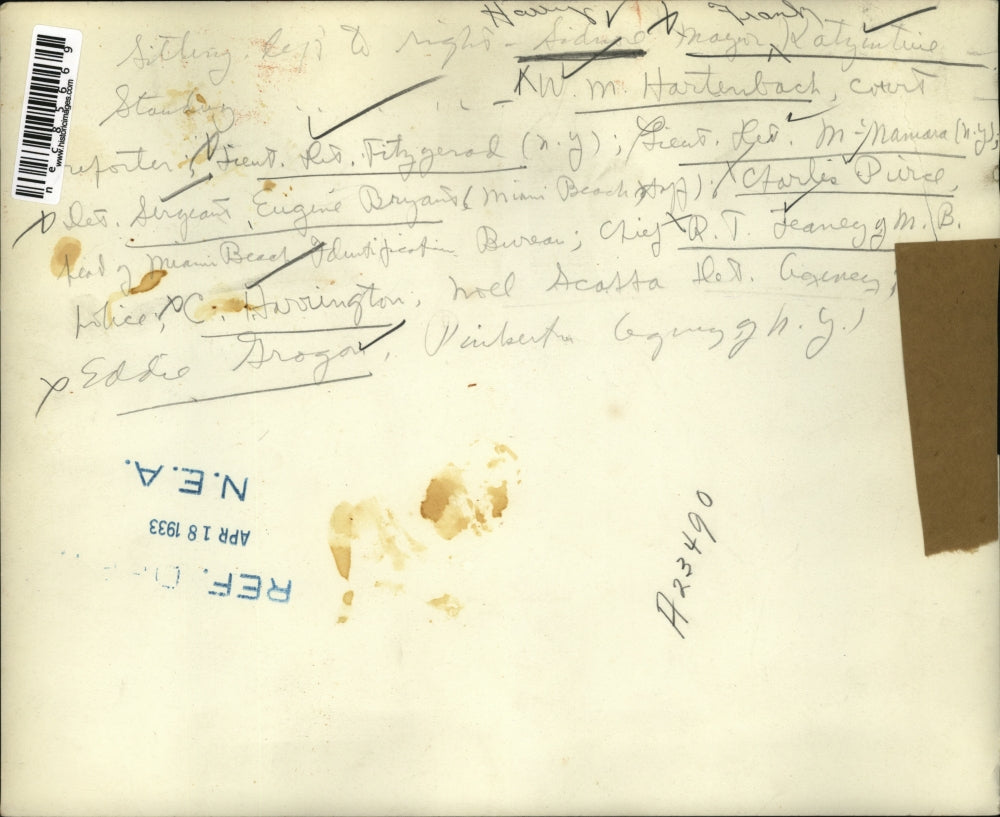 Harry Frank
Sitting left to right - Mayor Katzentine
Standing " " " - W. M. Hartenbach, court
reporter; Lieut. Det. Fitzgerald (N.Y.); Lieut. Det. McNamara (N.Y.);
Det. Sergeant, Eugene Bryant (Miami Beach Staff); Charles Pierce,
head of Miami Beach Identification Bureau; Chief R. T. of M. B.
Police; C. Harrington, Noel Scaffa Det. Agency;
Eddie Grogan, Pinkerton Agency of N.Y.)
nec85669
www.historicimages.com
N.E.A.
APR 18 1933
REF.
A23490